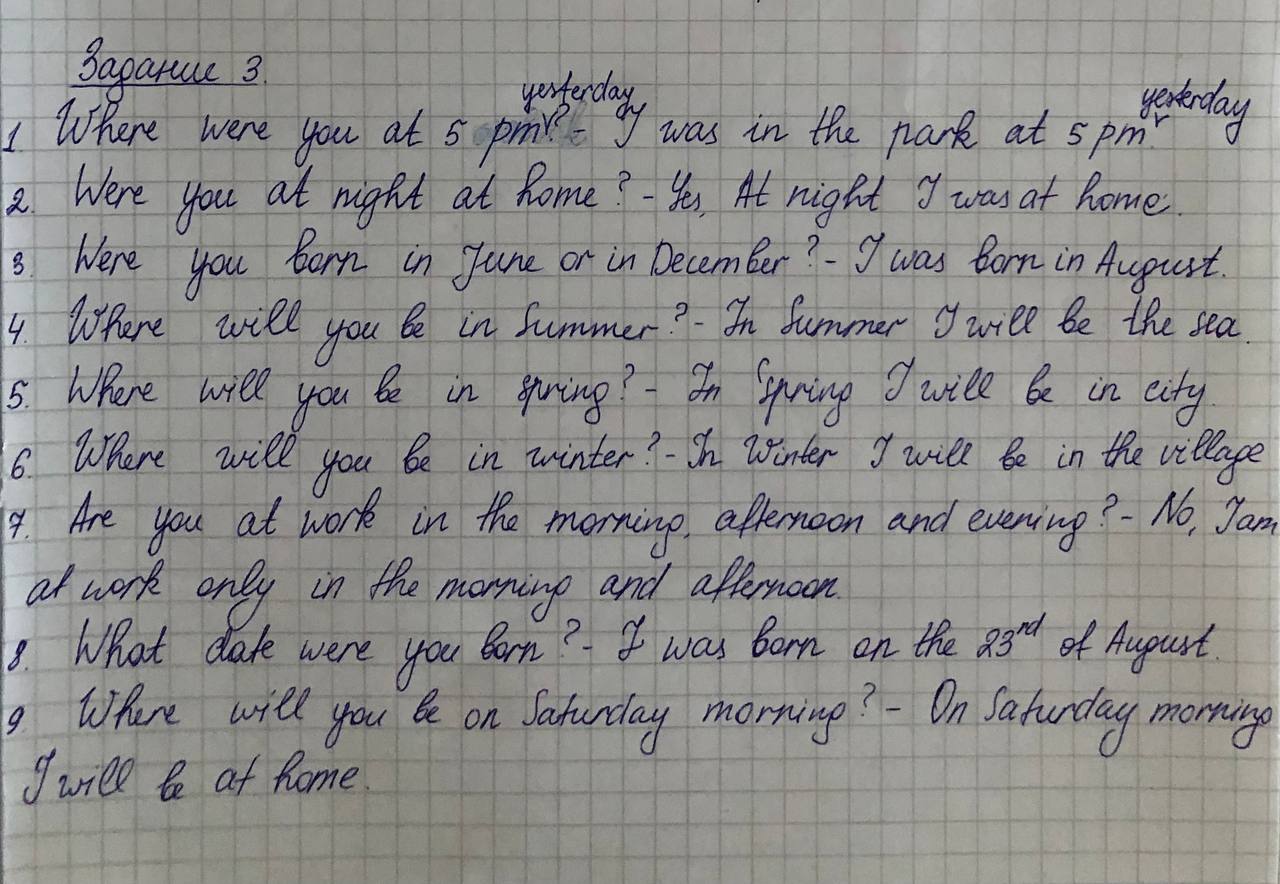 Задание 3.
1 Where were you at 5 pm yesterday? - I was in the park at 5 pm yesterday.
2. Were you at night at home? - Yes, At night I was at home.
3. Were you born in June or in December? - I was born in August.
4. Where will you be in Summer? - In Summer I will be the sea.
5. Where will you be in spring? - In Spring I will be in city.
6. Where will you be in winter? - In Winter I will be in the village
7. Are you at work in the morning, afternoon and evening? - No, I am
at work only in the morning and afternoon.
8. What date were you born? - I was born on the 23rd of August.
9 Where will you be on Saturday morning? - On Saturday morning
I will be at home.